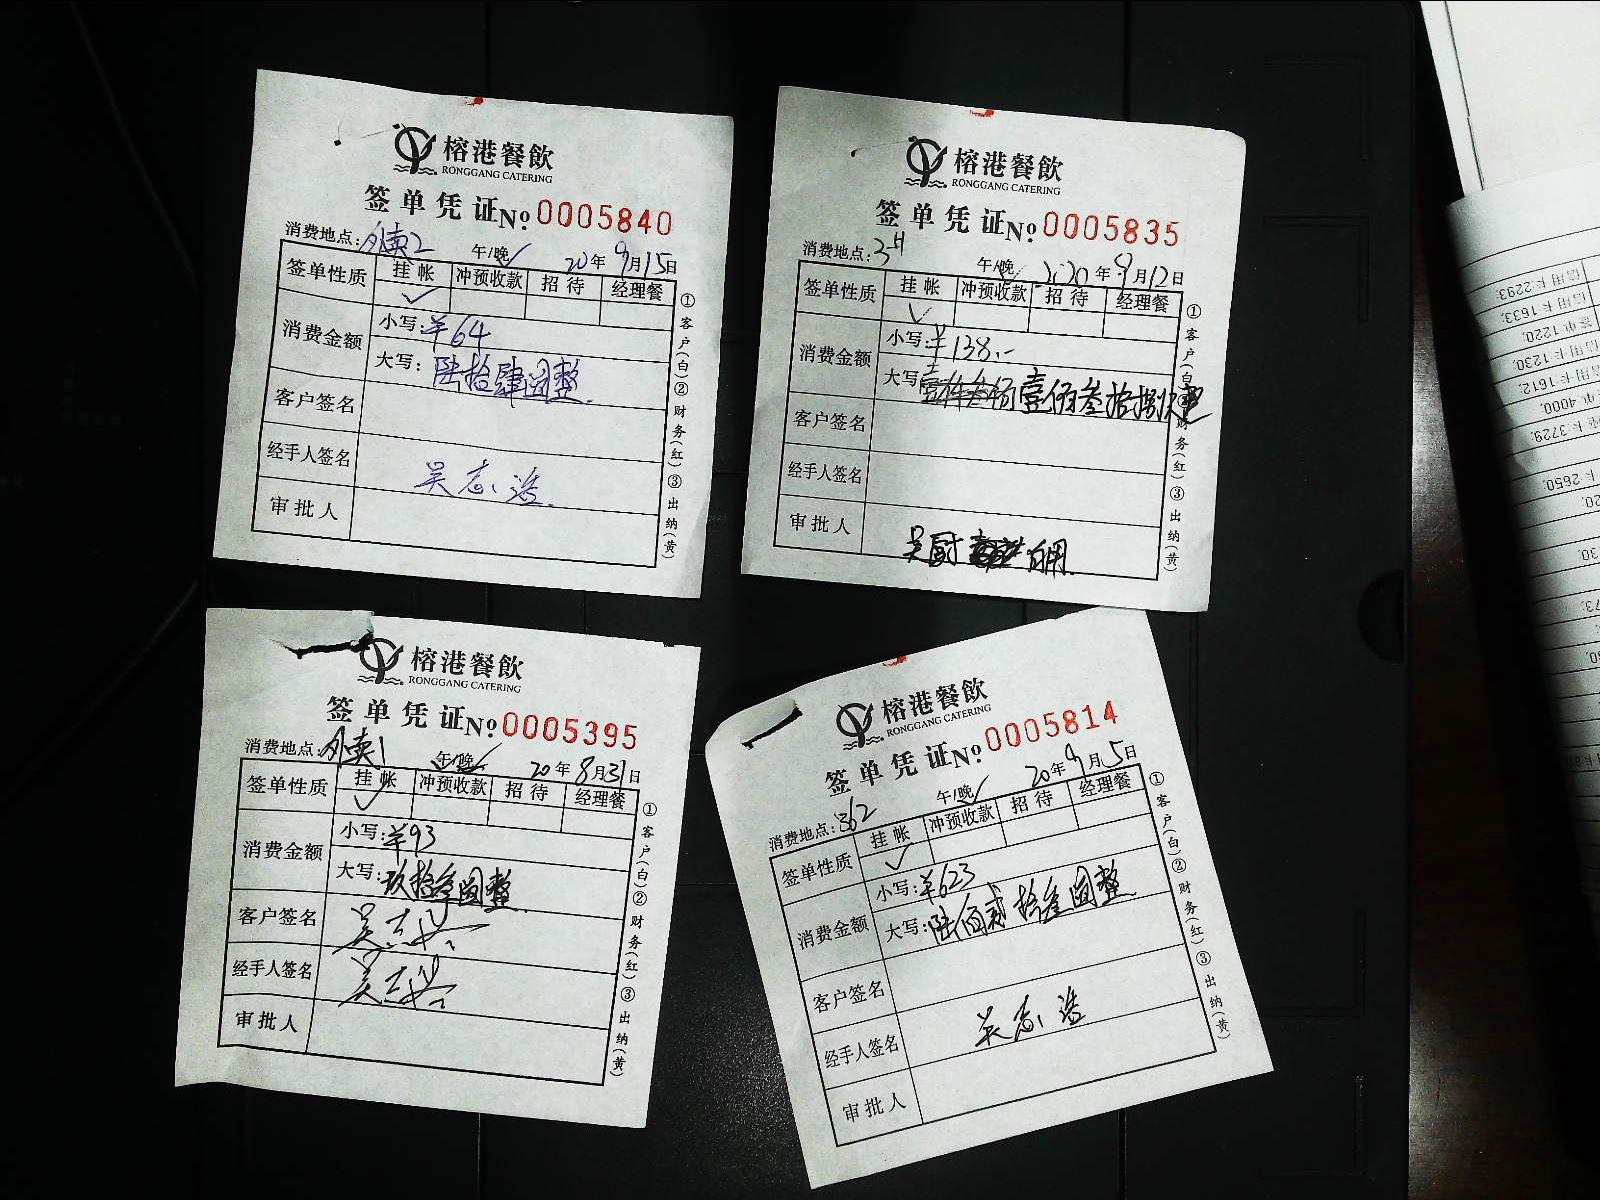 榕港餐飲
RONGGANG CATERING
签单凭证 No. 0005840
消费地点: 外卖2 午/晚 20年9月15日
签单性质 挂帐 冲预收款 招待 经理餐
✓
消费金额 小写: ¥64
大写: 陆拾肆圆整
客户签名
经手人签名 吴志浩
审批人
①客户(白)②财务(红)③出纳(黄)
榕港餐飲
RONGGANG CATERING
签单凭证 No. 0005835
消费地点: 午/晚 2020年9月12日
签单性质 挂帐 冲预收款 招待 经理餐
✓
消费金额 小写: ¥138.-
大写 壹佰叁拾捌
客户签名
经手人签名
审批人 吴厨 自用
①客户(白)②财务(红)③出纳(黄)
榕港餐飲
RONGGANG CATERING
签单凭证 No. 0005395
消费地点: 外卖1 午/晚 20年8月31日
签单性质 挂帐 冲预收款 招待 经理餐
✓
消费金额 小写: ¥93
大写: 玖拾叁圆整
客户签名
经手人签名
审批人
①客户(白)②财务(红)③出纳(黄)
榕港餐飲
RONGGANG CATERING
签单凭证 No. 0005814
消费地点: 362 午/晚 20年9月5日
签单性质 挂帐 冲预收款 招待 经理餐
✓
消费金额 小写: ¥623
大写: 陆佰贰拾叁圆整
客户签名
经手人签名 吴志浩
审批人
①客户(白)②财务(红)③出纳(黄)
信用卡2293;
信用卡1633;
签单1220,
信用卡1230,
信用卡1612,
4000,
卡3729,
卡2650,